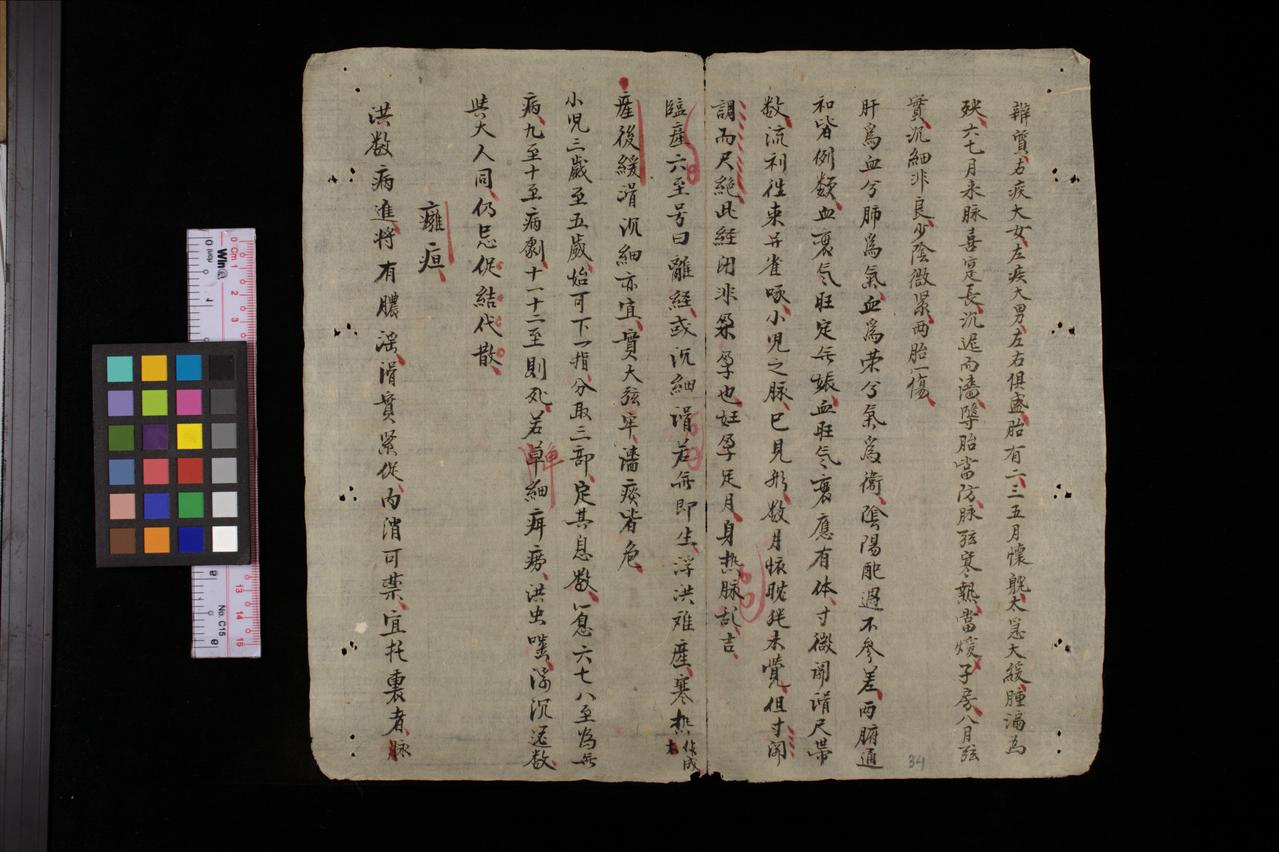 辨質右疾大女左疾大男左右俱盛胎有二三五月懷躭太急太緩腫漏為
殃六七月来脉喜寔長沉遲而濇墮胎當防脉弦寒熱當煖子房八月弦
實沉細非良少陰微緊両胎一傷
肝為血兮肺為氣血為荣兮氣為衛陰陽配遇不參差両臓通
和皆例類血衰气旺定无娠血旺气衰應有体寸微関滑尺帶
数流利徃来并雀啄小児之脉已見形数月懷躭猶未覺但寸関
調而尺絶此経闭非孕也妊孕足月身热脉乱吉
臨産六至号曰離経或沉細滑若無即生浮洪难産寒热
産後緩滑沉細亦宜實大弦牢濇疾皆危
小児三歲至五歲始可下一指分取三部定其息数一息六七八至為無
病九至十至病劇十一十二至則死若單細疳癆洪虫嗌浮沉遲数
與大人同仍忌促結代散
癰疽
洪数病進将有膿濇滑實緊促内消可禁宜托裏者脉
34